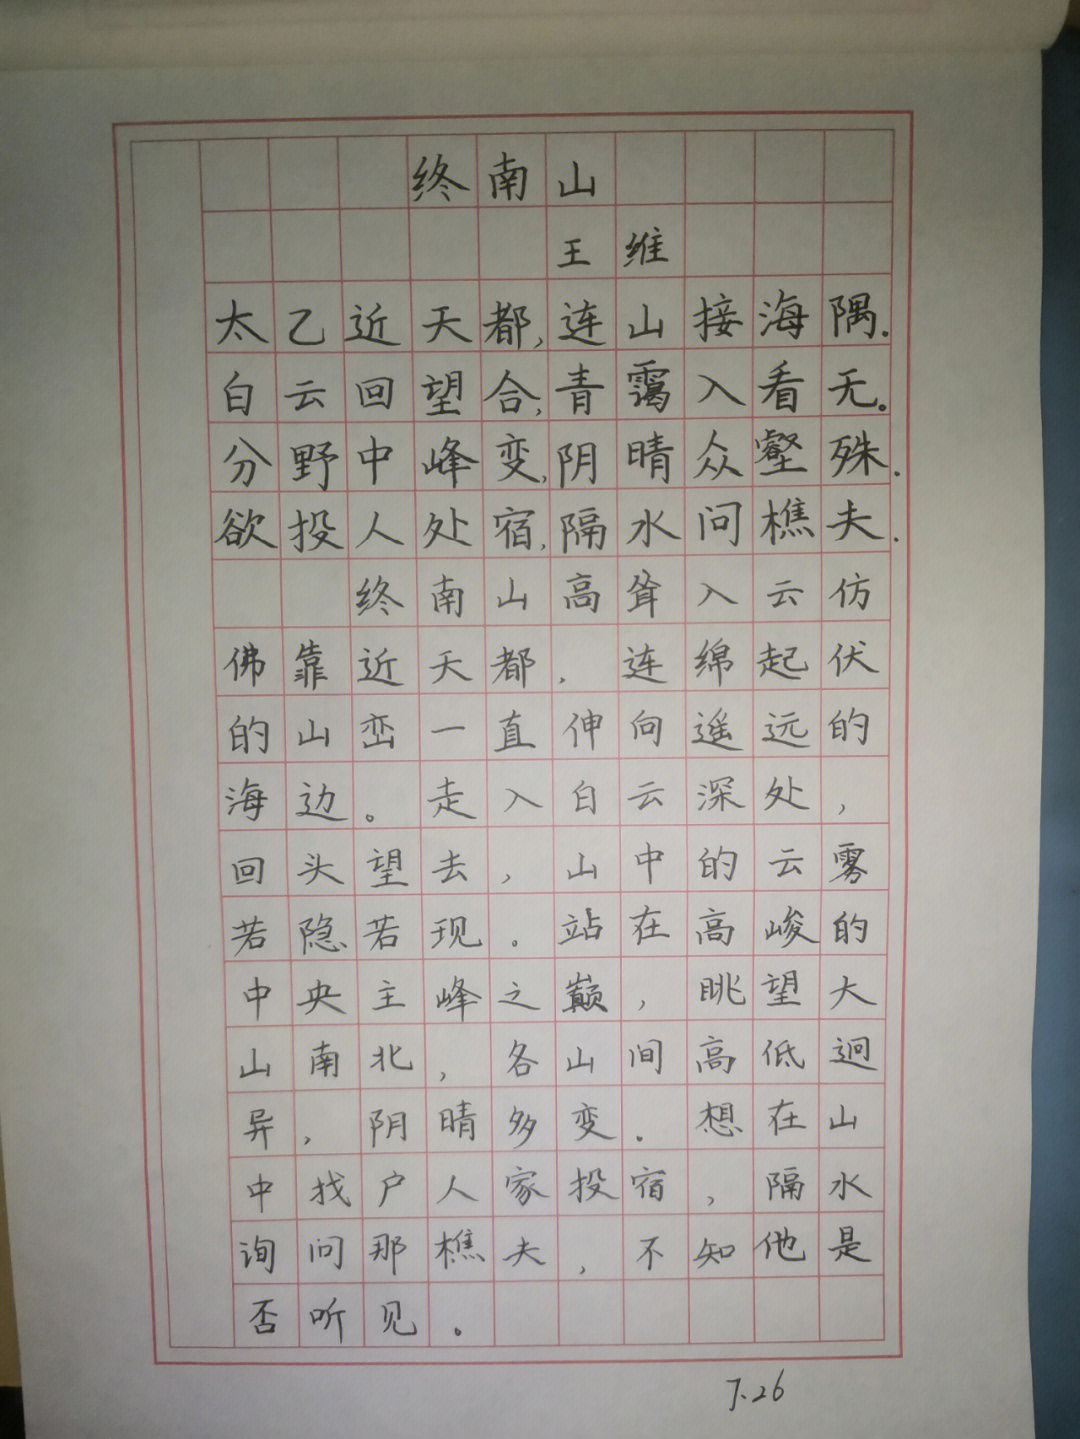 终南山
王维
太乙近天都,连山接海隅.
白云回望合,青霭入看无。
分野中峰变,阴晴众壑殊.
欲投人处宿,隔水问樵夫.
终南山高耸入云仿
佛靠近天都,连绵起伏
的山峦一直伸向遥远的
海边。走入白云深处,
回头望去,山中的云雾
若隐若现。站在高峻的
中央主峰之巅,眺望大
山南北,各山间高低迥
异,阴晴多变.想在山
中找户人家投宿,隔水
询问那樵夫,不知他是
否听见。
7.26